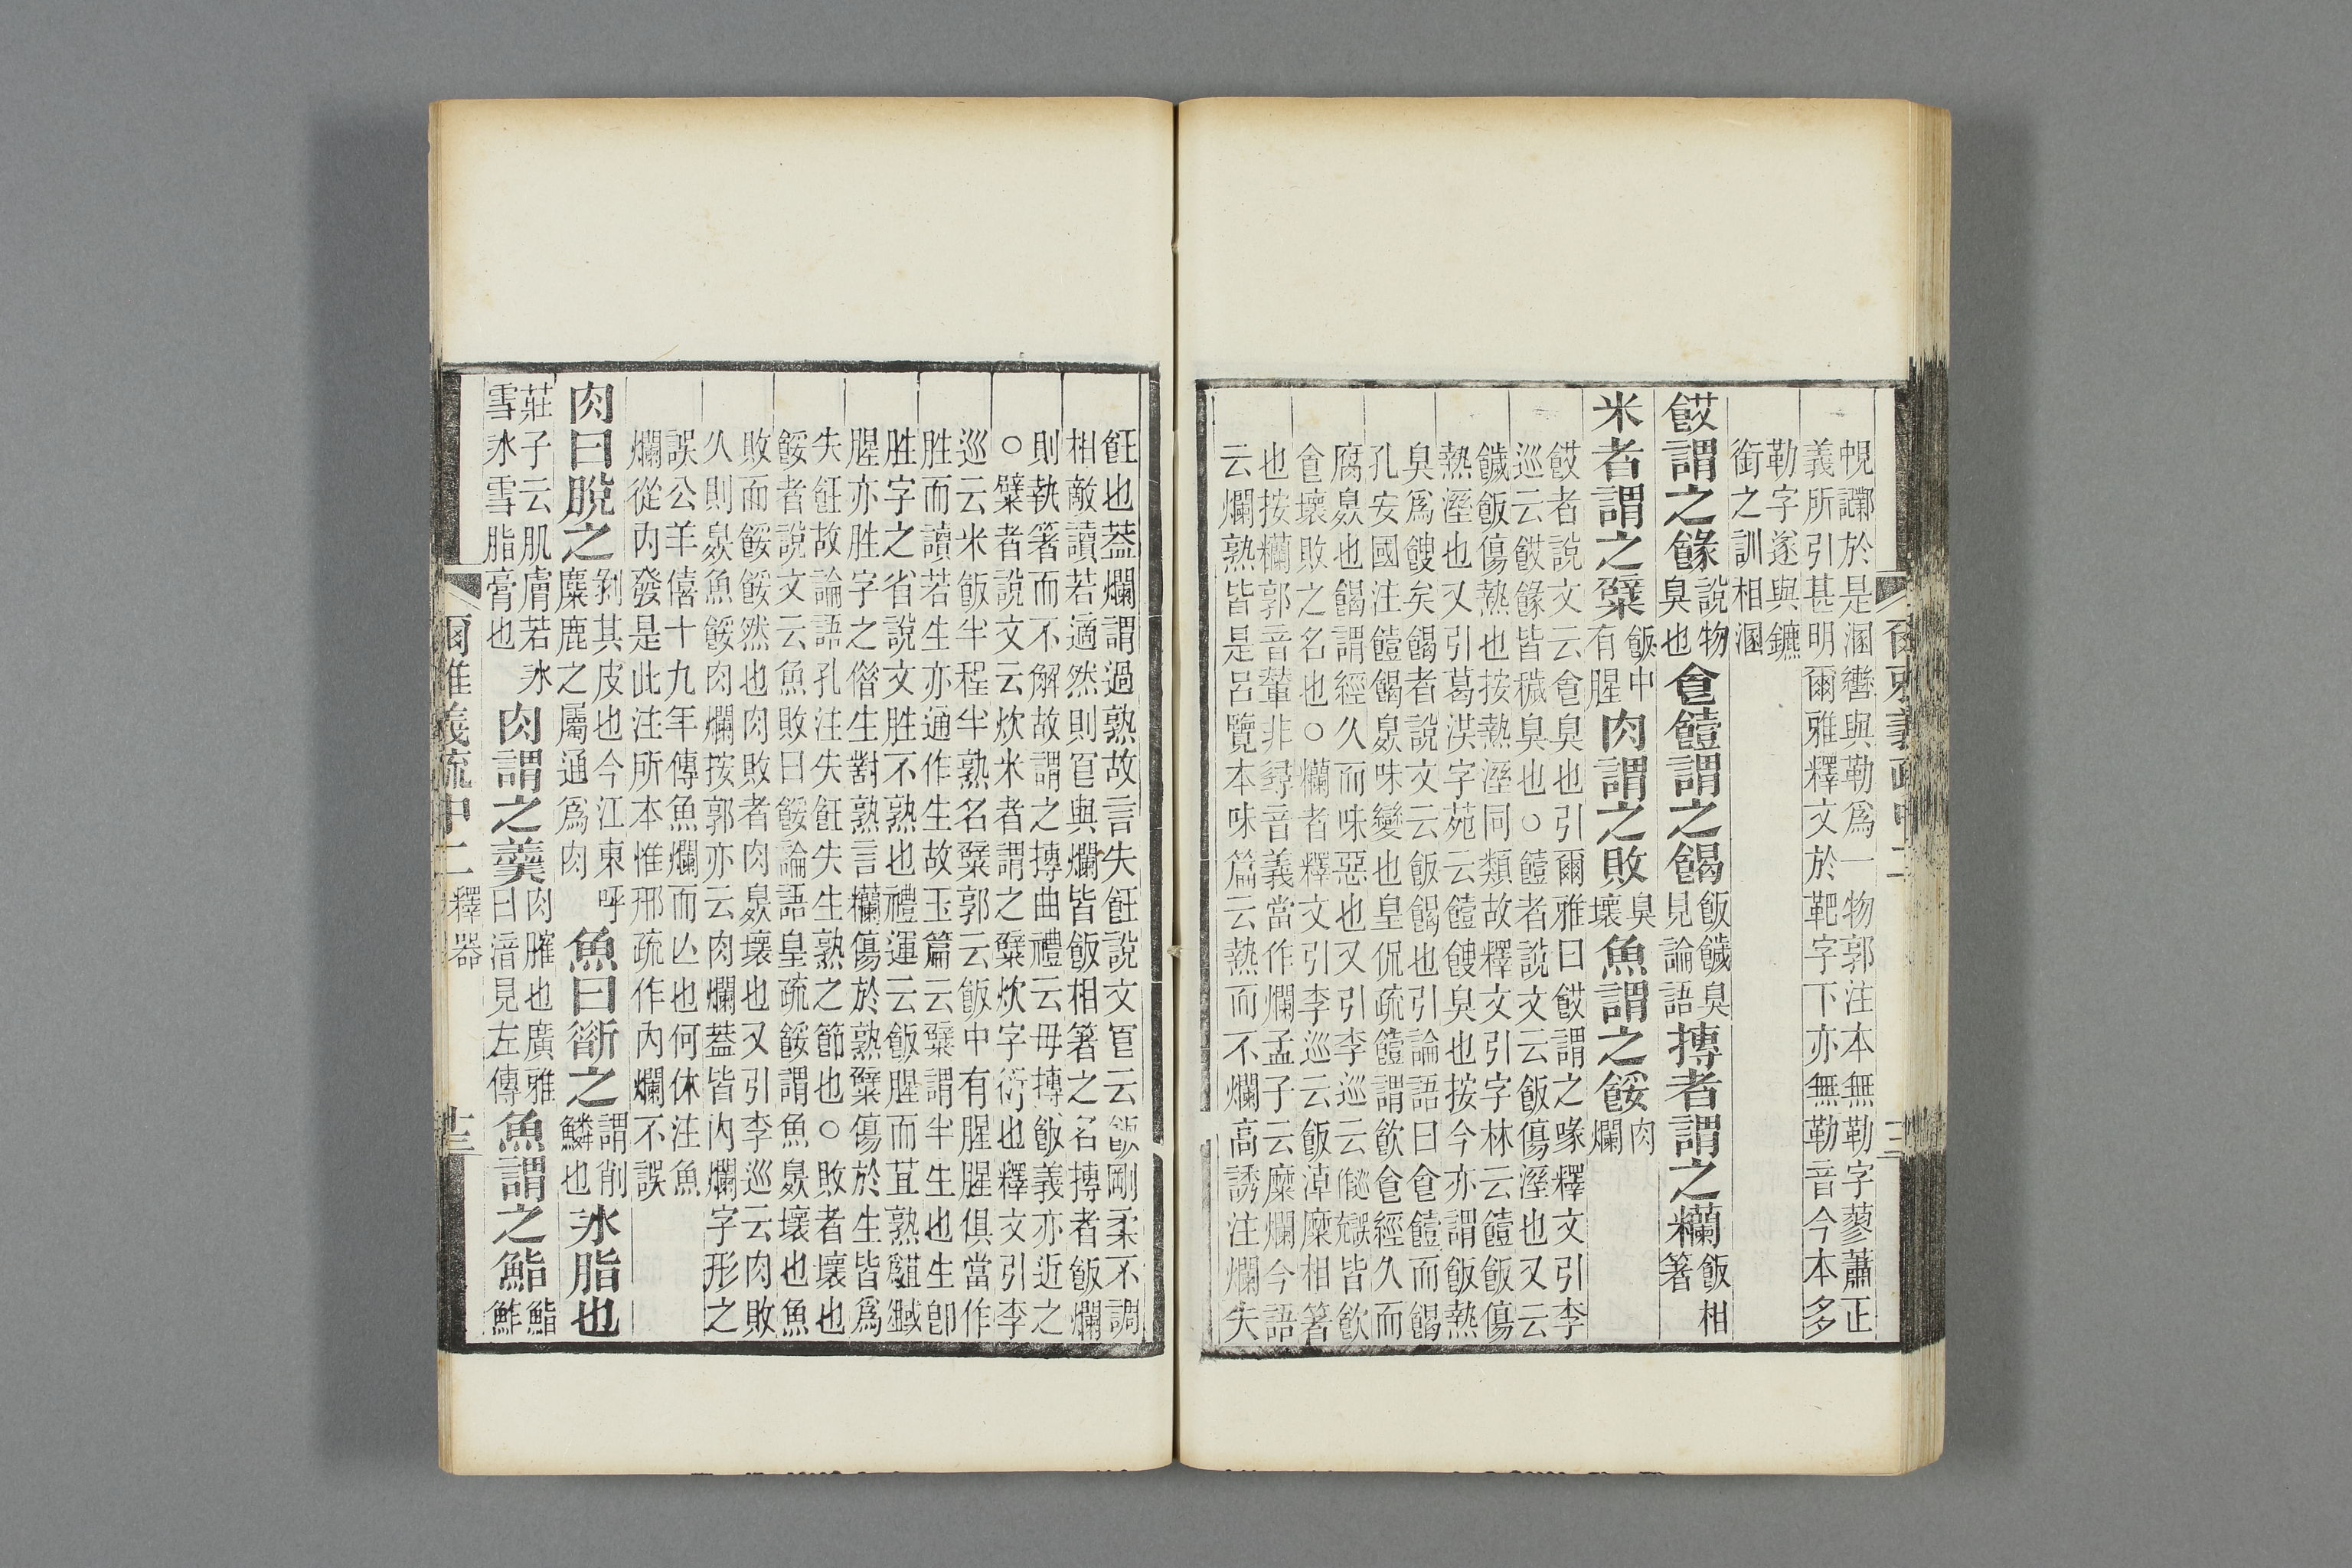 帨䜝於是溷轡與勒爲一物郭注本無勒字蓼蕭正
義所引甚明爾雅釋文於靶字下亦無勒音今本多
勒字遂與鑣
銜之訓相溷
餀謂之餯說物臭也食饐謂之餲飯饖臭見論語摶者謂之糷飯相箸
米者謂之糪飯中有腥肉謂之敗臭壞魚謂之餒肉爛
餀者說文云食臭也引爾雅曰餀謂之喙釋文引李
巡云餀餯皆穢臭也○饐者說文云飯傷溼也又云
饖飯傷熱也按熱溼同類故釋文引字林云饐飯傷
熱溼也又引葛洪字苑云饐餿臭也按今亦謂飯熱
臭爲餿矣餲者說文云飯餲也引論語曰食饐而餲
孔安國注饐餲臭味變也皇侃疏饐謂飮食經久而
腐臭也餲謂經久而味惡也又引李巡云皆飮
食壞敗之名也○糷者釋文引李巡云飯淖糜相箸
也按糷郭音輦非尋音義當作爛孟子云糜爛今語
云爛熟皆是呂覽本味篇云熟而不爛高誘注爛失
飪也葢爛謂過熟故言失飪說文云飯剛柔不調
相敵讀若適然則與爛皆飯相箸之名摶者飯爛
則執箸而不解故謂之摶曲禮云毋摶飯義亦近之
○糪者說文云炊米者謂之糪炊字衍也釋文引李
巡云米飯半程半熟名糪郭云飯中有腥腥俱當作
胜而讀若生亦通作生故玉篇云糪謂半生也生卽
胜字之省說文胜不熟也禮運云飯腥而苴熟
腥亦胜字之僭生對熟言糷傷於熟糪傷於生皆爲
失飪故論語孔注失飪失生熟之節也○敗者壞也
餒者說文云魚敗曰餒論語皇疏餒謂魚臭壞也魚
敗而餒餒然也肉敗者肉臭壞也又引李巡云肉敗
久則臭魚餒肉爛按郭亦云肉爛蓋皆內爛字形之
誤公羊僖十九年傳魚爛而亾也何休注魚
爛從內發是此注所本惟邢疏作內爛不誤
肉曰脫之剝其皮也今江東呼麋鹿之屬通爲肉魚曰斮之謂削鱗也冰脂也
莊子云肌膚若冰雪冰雪脂膏也肉謂之羹肉臛也廣雅曰湆見左傳魚謂之鮨鮨鮓
爾雅義疏中二 釋器